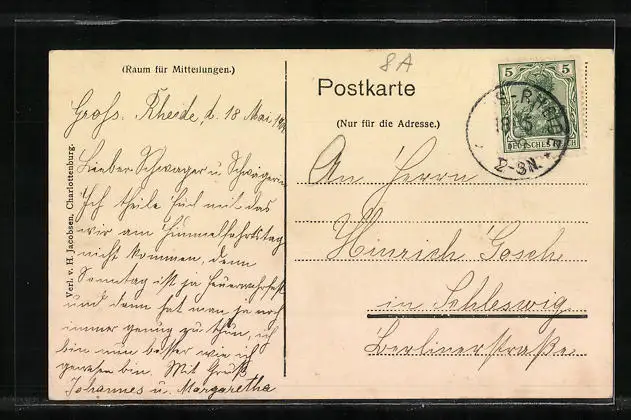 8A
(Raum für Mitteilungen.)
Postkarte
(Nur für die Adresse.)
5 5
DEUTSCHES REICH
S-RHEIDE
18 5
2-3N.
Gross. Rheide, d. 18 Mai
Lieber Schwager u Schwägerin
Ich theile Euch mit das
wir am Himmelfahrtstag
nicht kommen, denn
Sonntag ist ja Feuerwehrfest
und dann hat man ja noch
immer genug zu thun, ich
bin nun besser wie ich
gewesen bin. Mit Gruß
Johannes u. Margaretha
Verl. v. H. Jacobsen, Charlottenburg.
An Herrn
Hinrich Gosch
in Schleswig
Berlinerstraße